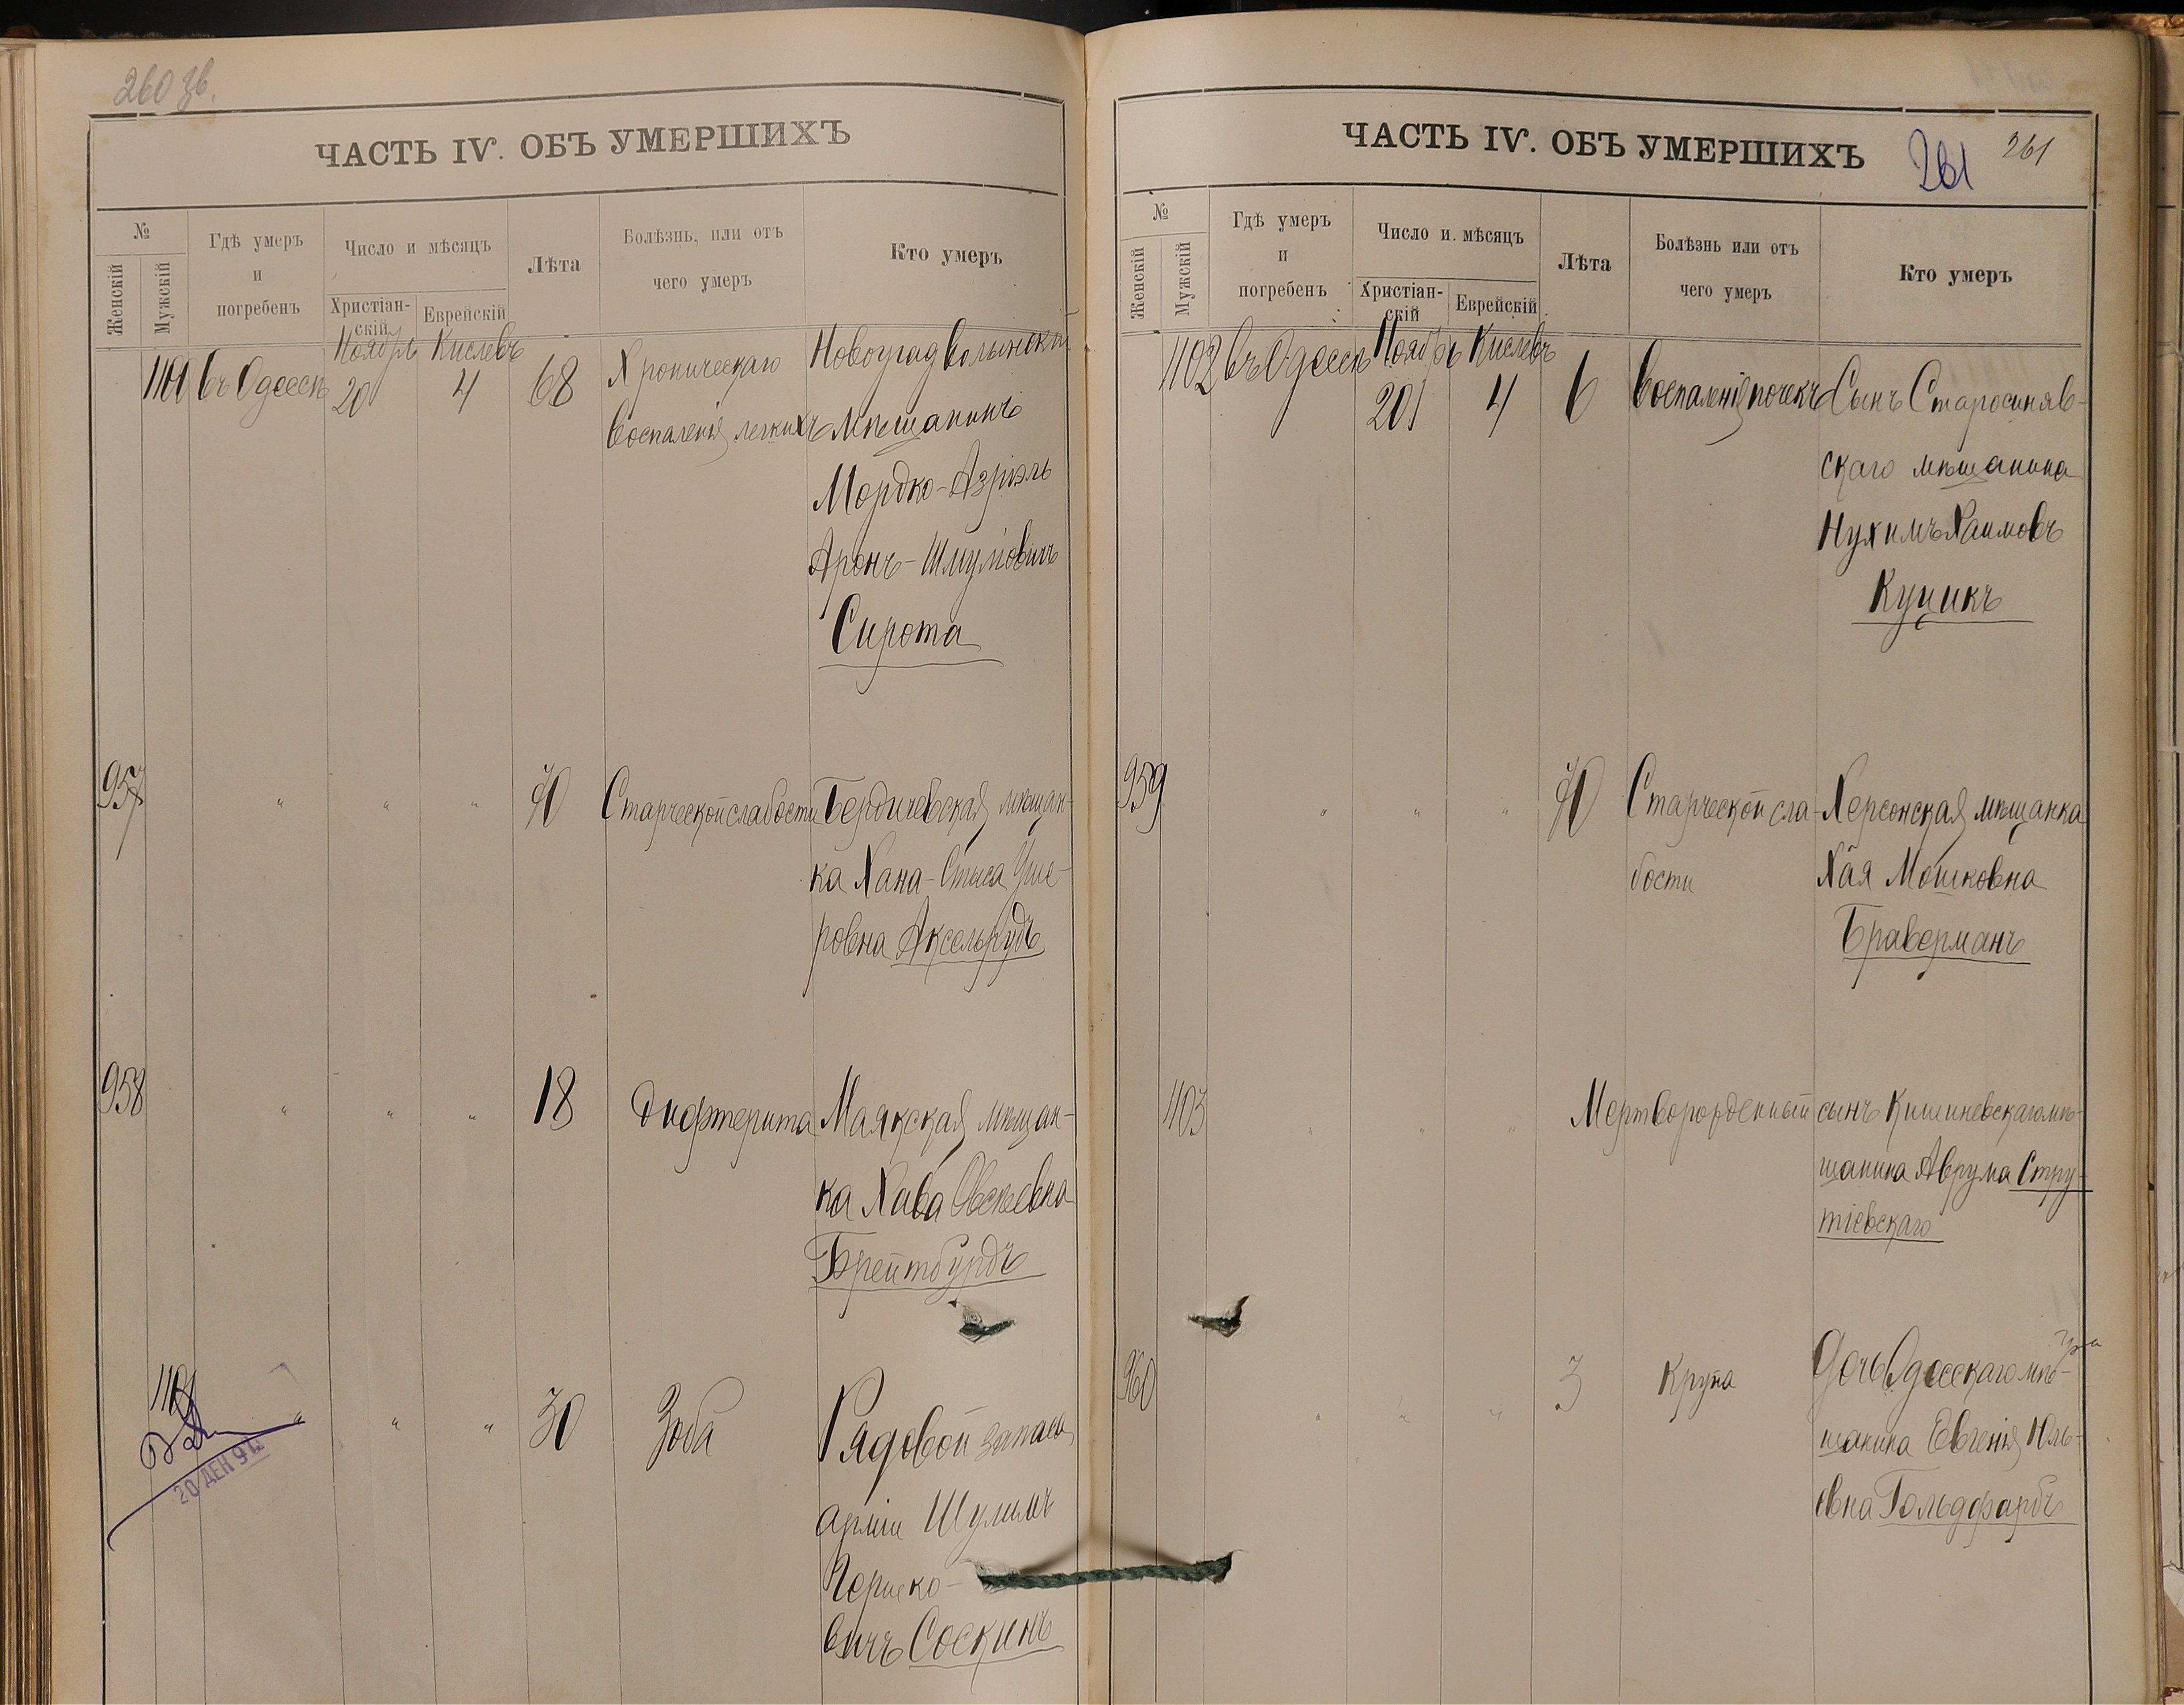 260 зв.
ЧАСТЬ IV. ОБЪ УМЕРШИХЪ
№
Женскій
Мужскій
Гдѣ умеръ
и
погребенъ
Число и мѣсяцъ
Христіан-
скій
Еврейскій
Лѣта
Болѣзнь, или отъ
чего умеръ
Кто умеръ
Ноябрь Кислевъ
1100 въ Одессѣ 20 4 68 Хроническаго Новоградволынскій
воспаленія легкихъ мѣщанинъ
Мордко-Азріэль
Аронъ-Шмулiовичъ
Сирота
957 " " " 70 Старческой слабости Бердичевская мѣщан-
ка Хана- Уше-
ровна Аксельрудъ
958 " " " 18 Дифтерита Маякская мѣщан-
ка Хава Овсѣевна
Брейтбурдъ
1101 " " " 30 Зоба Рядовой запаса
арміи Шулимъ
Гершко-
вичъ Соскинъ
20 ДЕК 9
ЧАСТЬ IV. ОБЪ УМЕРШИХЪ
261 261
№
Женскій
Мужскій
Гдѣ умеръ
и
погребенъ
Число и. мѣсяцъ
Христіан-
скій
Еврейскій
Лѣта
Болѣзнь или отъ
чего умеръ
Кто умеръ
Ноябрь Кислевъ
1102 въ Одессѣ 20 4 6 воспаленія почекъ Сынъ Старосиняв-
скаго мѣщанина
Нухимъ Хаимовъ
Куцикъ
959 " " " 70 Старческой сла- Херсонская мѣщанка
бости Хая Мошковна
Браверманъ
1103 " " " Мертворорденный сынъ Кишиневскаго мѣ-
щанина Аврума Стру-
тіевскаго
960 " " " 3 Крупа Дочь Одесскаго мѣ-
щанина Евгенія Юль-
евна Гольдфарбъ